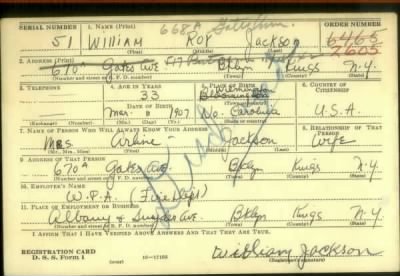 SERIAL NUMBER 1. NAME (Print) 668A ORDER NUMBER
51 William Roy Jackson 6465
(First) (Middle) (Last) 7605
2. ADDRESS (Print)
670A Gates Ave Bklyn Kings N.Y.
(Number and street or R. F. D. number) (Town) (County) (State)
3. TELEPHONE 4. AGE IN YEARS 5. PLACE OF BIRTH 6. COUNTRY OF CITIZENSHIP
33 Wilmington
DATE OF BIRTH
Mar. 1907 No. Carolina U.S.A.
(Exchange) (Number) (Mo.) (Day) (Yr.) (State or country)
7. NAME OF PERSON WHO WILL ALWAYS KNOW YOUR ADDRESS 8. RELATIONSHIP OF THAT PERSON
Mrs Arline Jackson Wife
(Mr., Mrs., Miss) (First) (Middle) (Last)
9. ADDRESS OF THAT PERSON
670A Gates Ave. Bklyn Kings N.Y.
(Number and street or R. F. D. number) (Town) (County) (State)
10. EMPLOYER'S NAME
W.P.A. (Fire Dept)
11. PLACE OF EMPLOYMENT OR BUSINESS
Albany & Snyder Ave. Bklyn Kings N.Y.
(Number and street or R. F. D. number) (Town) (County) (State)
I AFFIRM THAT I HAVE VERIFIED ABOVE ANSWERS AND THAT THEY ARE TRUE.
REGISTRATION CARD
D. S. S. Form 1 (over) William Jackson
(Registrant's signature)